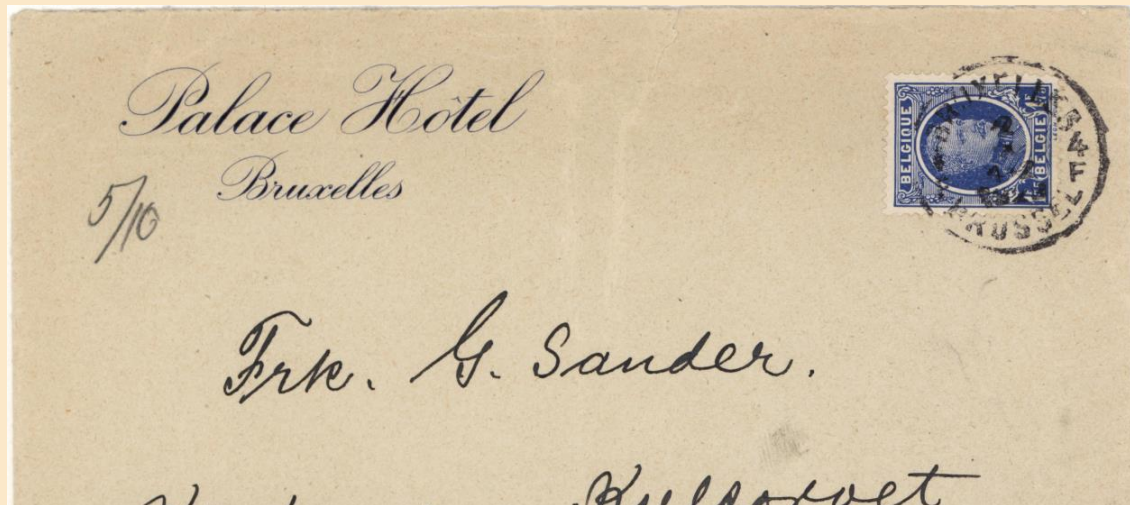 Palace Hôtel
Bruxelles
5/10
BELGIQUE
BELGIË
BRUXELLES 4 F
BRUSSEL
Frk. G. Sander.
Kultorvet